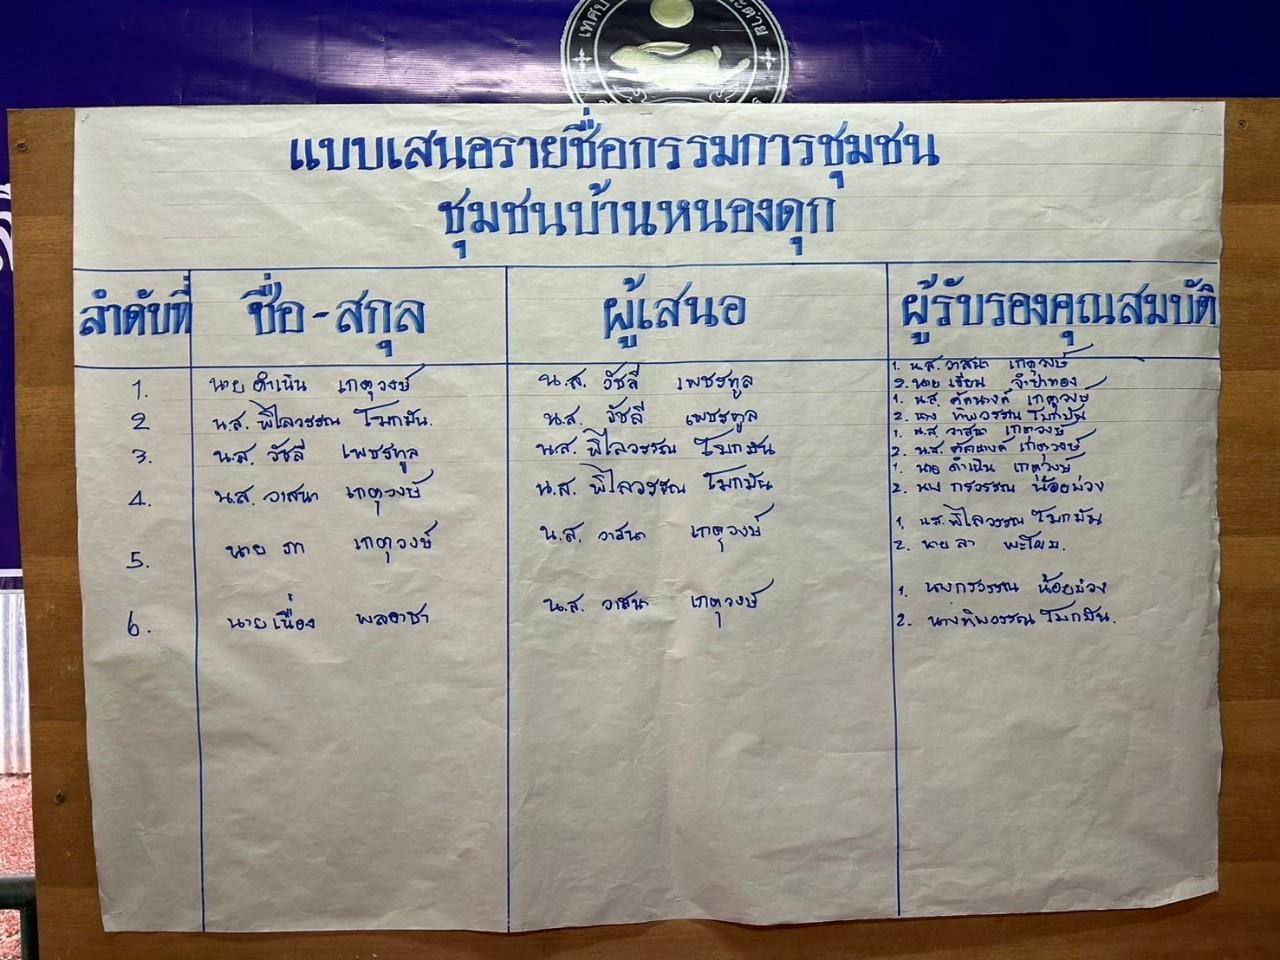 แบบเสนอรายชื่อกรรมการชุมชน
ชุมชนบ้านหนองดุก
ลำดับที่ ชื่อ-สกุล ผู้เสนอ ผู้รับรองคุณสมบัติ
1. นาย ดำเนิน เกตุวงษ์ น.ส. วัชลี เพชรทูล 1. น.ส. วาสนา เกตุวงษ์
2. นาย เขียน จำปาทอง
2 น.ส. พิไลวรรณ โมกมัน. น.ส. วัชลี เพชรทูล 1. น.ส. เกตุวงษ์
2. นาง ทิพวรรณ โมกมัน
3. น.ส. วัชลี เพชรทูล น.ส. พิไลวรรณ โมกมัน 1. น.ส. วาสนา เกตุวงษ์
2. น.ส. เกตุวงษ์
4. น.ส. วาสนา เกตุวงษ์ น.ส. พิไลวรรณ โมกมัน 1. นาย ดำเนิน เกตุวงษ์
2. นาง กรวรรณ น้อยบ่วง
5. นาย ภา เกตุวงษ์ น.ส. วาสนา เกตุวงษ์ 1. น.ส. พิไลวรรณ โมกมัน
2. นาย ลา
6. นาย เนื่อง พลอาชา น.ส. วาสนา เกตุวงษ์ 1. นางกรวรรณ น้อยบ่วง
2. นางทิพวรรณ โมกมัน.